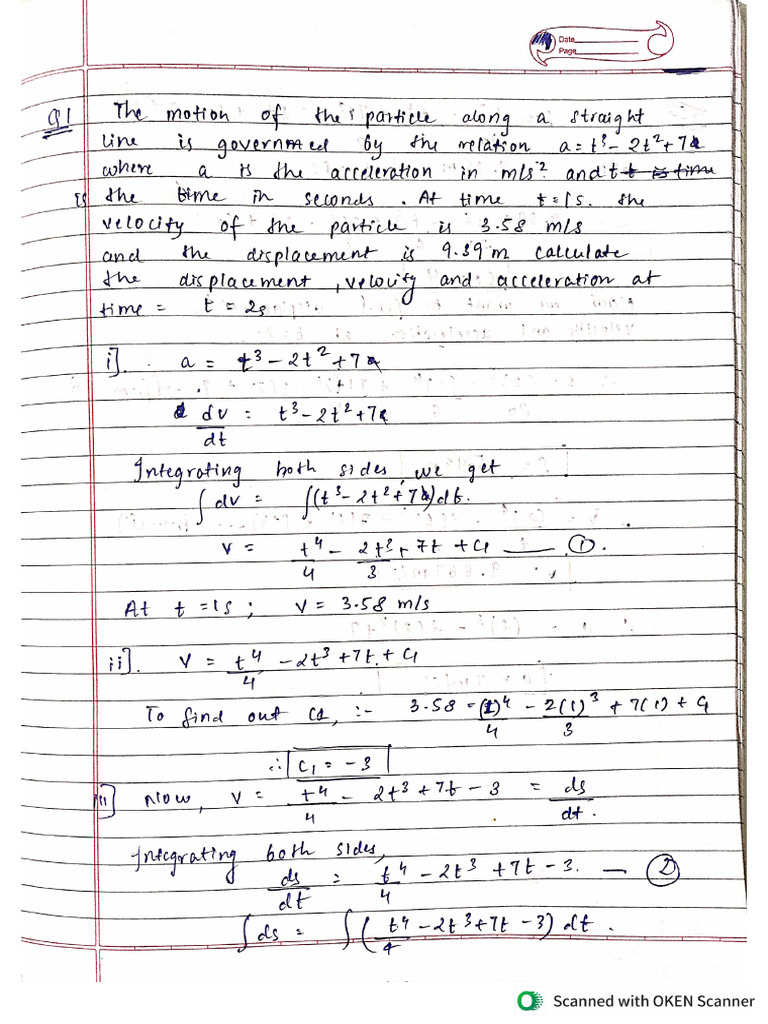 Date
Page
Q1 The motion of the particle along a straight
line is governed by the relation a = t³ - 2t² + 7
where a is the acceleration in m/s⁻² and t t is time
is the time in seconds. At time t = 1s. the
velocity of the particle is 3.58 m/s
and the displacement is 9.39 m calculate
the displacement, velocity and acceleration at
time = t = 2s
i]. a = t³ - 2t² + 7
dv/dt = t³ - 2t² + 7
Integrating both sides, we get
∫dv = ∫(t³ - 2t² + 7)dt.
v = t⁴/4 - 2t³/3 + 7t + C1 ——— ①.
At t = 1s ; v = 3.58 m/s
ii]. v = t⁴/4 - 2t³ + 7t + C1
To find out C1, :- 3.58 = (1)⁴/4 - 2(1)³/3 + 7(1) + C1
∴ C1 = -3
iii] Now, v = t⁴/4 - 2t³ + 7t - 3 = ds/dt.
Integrating both sides,
ds/dt = t⁴/4 - 2t³ + 7t - 3. — ②
∫ds = ∫(t⁴/4 - 2t³ + 7t - 3) dt.
Scanned with OKEN Scanner